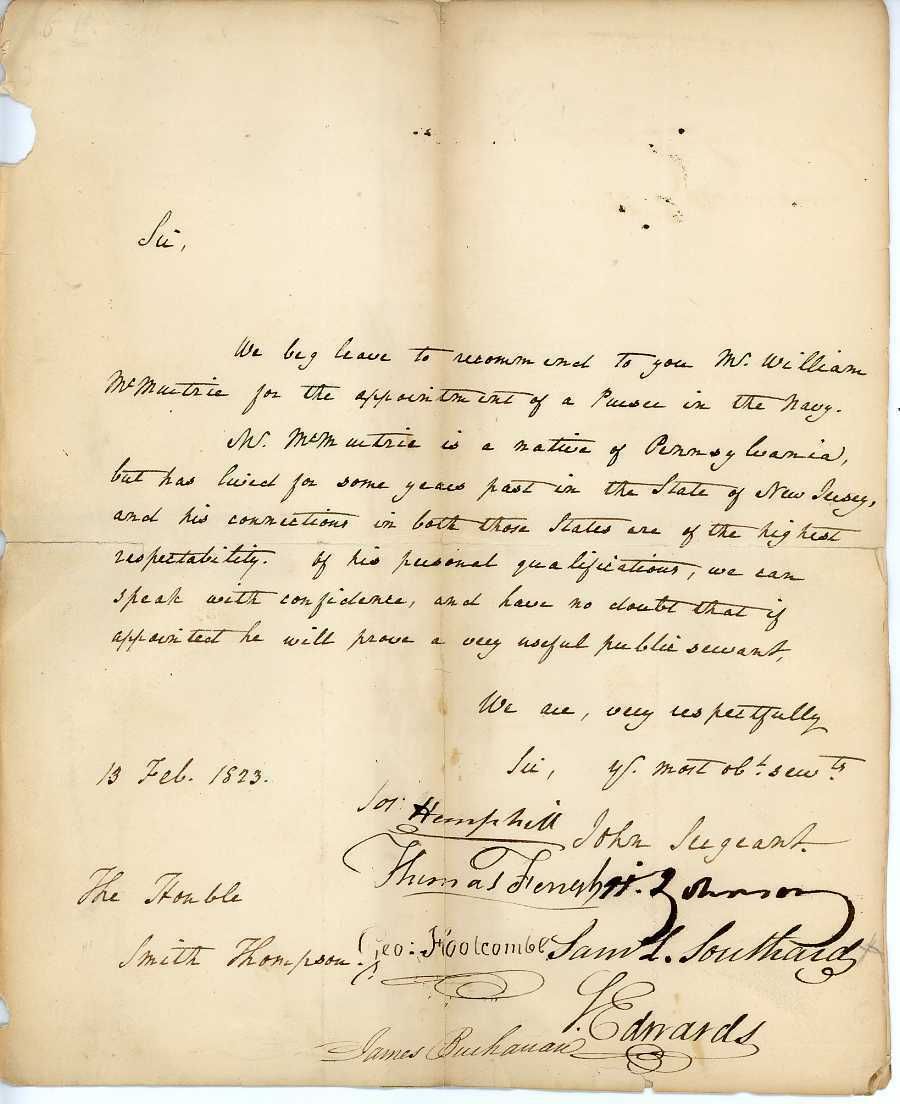 Sir,
We beg leave to recommend to you Mr. William
McMurtrie for the appointment of a Purser in the Navy.
Mr. McMurtrie is a native of Pennsylvania,
but has lived for some years past in the State of New Jersey,
and his connections in both those States are of the highest
respectability. Of his personal qualifications, we can
speak with confidence, and have no doubt that if
appointed he will prove a very useful public servant.
We are, very respectfully
Sir, yr. most obt. servts
13 Feb. 1823.
Jos: Hemphill
John Sergeant.
Thomas H. Johnson
The Honble
Smith Thompson.
Geo: Holcombe
Saml. L. Southard
Edwards
James Buchanan